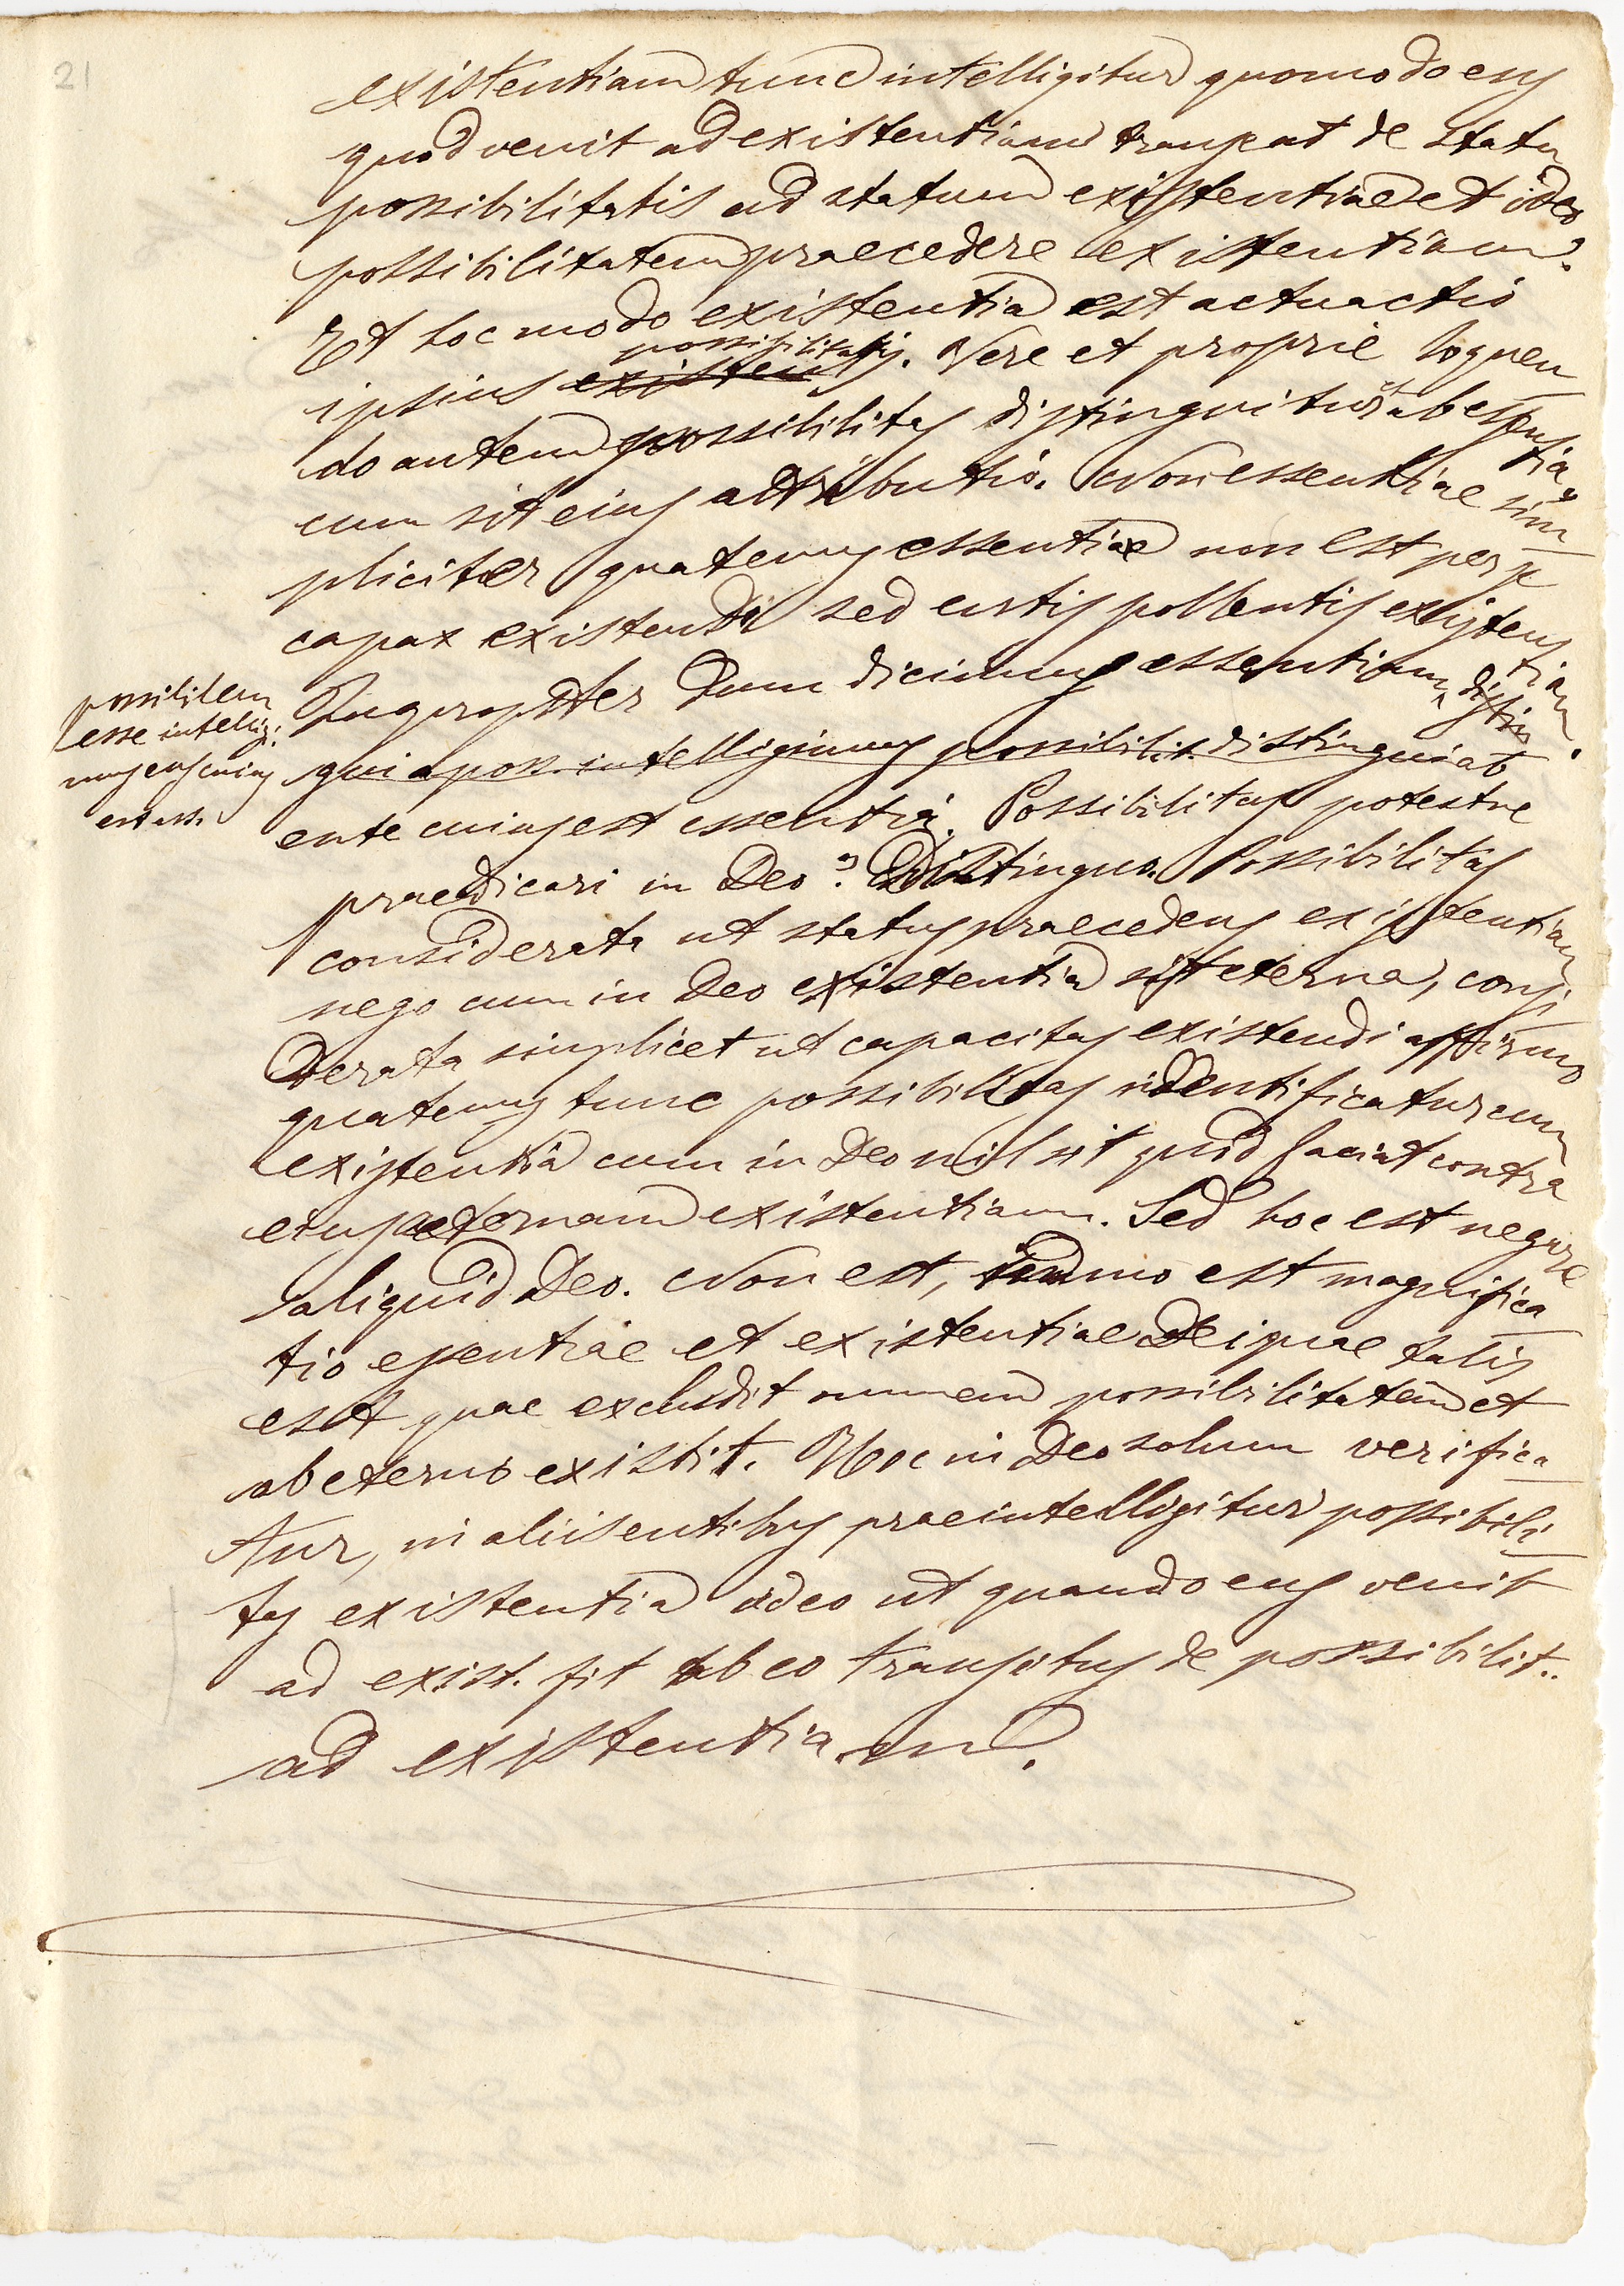 21
existentiam tunc intelligitur quomodo ens
quod venit ad existentiam transeat de statu
possibilitatis ad statum existentiae et ideo
possibilitatem praecedere existentiam.
Et hoc modo existentia est actuactio
possibilitatis
ipsius existen. Vere et proprie loquen
do autem possibilitas distinguitur ab essentia
cum sit eius attributio. Non essentiae sim
pliciter quatenus essentia non est per se
capax existendi sed entis pollentis existentiam.
Quapropter dum dicimus essentiam distin
possibilem
esse intelligi
mus ens cuius
est ess.
gui a poss. intelligimus possibilit. distingui ab
ente cuius est essentia. Possibilitas potestne
praedicari in Deo? Distinguo. Possibilitas
considerata ut status praecedens existentiam
nego cum in Deo existentia sit eterna, consi
derata simplicet ut capacitas existendi affirmo
quatenus tunc possibilitas identificatur cum
existentia cum in Deo nil sit quod faciat contra
eius aeternam existentiam. Sed hoc est negare
aliquid Deo. Non est, immo est magnifica
tio essentiae et existentiae Dei quae talis
est quae excludit omnem possibilitatem et
ab eterno existit. Hoc in Deo solum verifica
tur, in aliis entibus praeintelligitur possibili
tas existentia adeo ut quando ens venit
ad exist. fit ab eo transitus de possibilit.
ad existentiam.